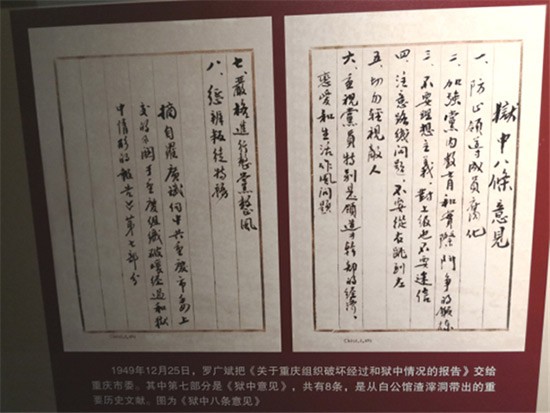 獄中八條意見
一、防止領導成員腐化
二、加強黨內教育和實際鬥爭的鍛煉
三、不要理想主義，對上級也不要迷信
四、注意路綫問題，不要從右跳到左
五、切勿輕視敵人
六、重視黨員特別是領導幹部的經濟、
戀愛和生活作風問題
七、嚴格進行整黨整風
八、懲辦叛徒特務
摘自羅廣斌向中共重慶市委上
交的《關于重慶組織破壞經過和獄
中情形的報告》第七部分
1949年12月25日，罗广斌把《关于重庆组织破坏经过和狱中情况的报告》交给
重庆市委。其中第七部分是《狱中意见》，共有8条，是从白公馆渣滓洞带出的重
要历史文献。图为《狱中八条意见》